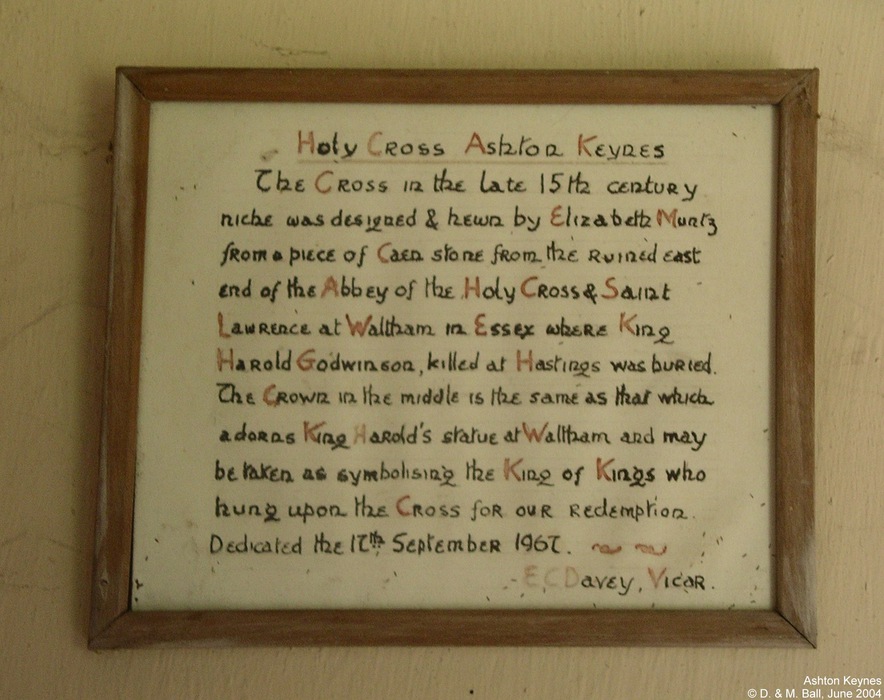 Holy Cross Ashton Keynes
The Cross in the late 15th century
niche was designed & hewn by Elizabeth Muntz
from a piece of Caen stone from the ruined east
end of the Abbey of the Holy Cross & Saint
Lawrence at Waltham in Essex where King
Harold Godwinson, killed at Hastings was buried.
The Crown in the middle is the same as that which
adorns King Harold's statue at Waltham and may
be taken as symbolising the King of Kings who
hung upon the Cross for our redemption.
Dedicated the 17th September 1967.
E C Davey, Vicar.
Ashton Keynes
© D. & M. Ball, June 2004